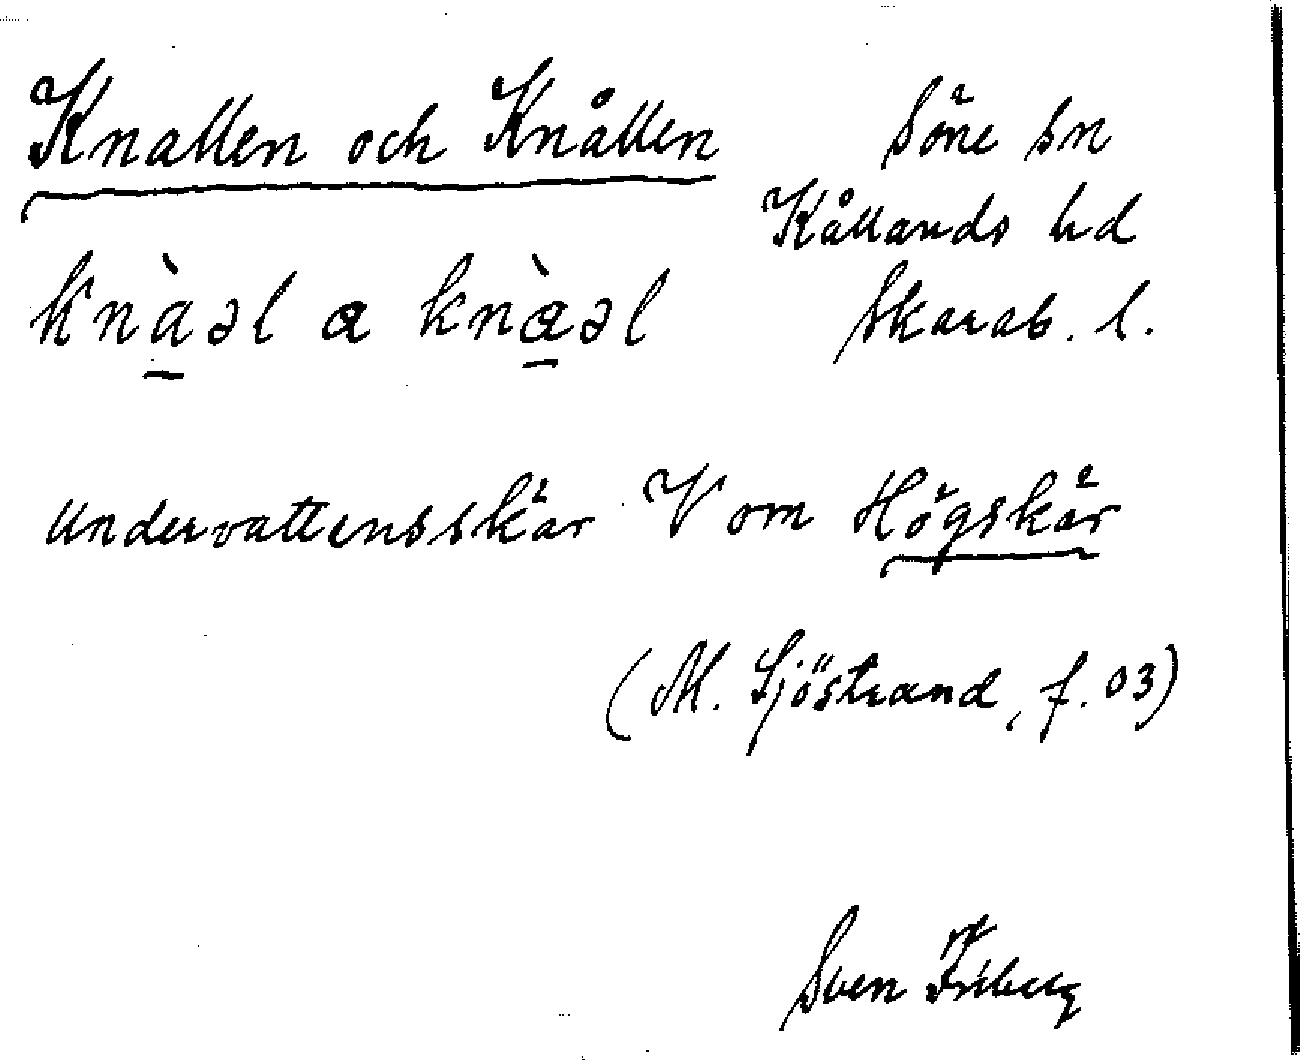 Knallen och Knållen
Söne sn
Kållands hd
Skarab. l.
knàəl a knàəl
undervattensskär V om Högskär
(M. Sjöstrand, f. 03)
Sven Friberg